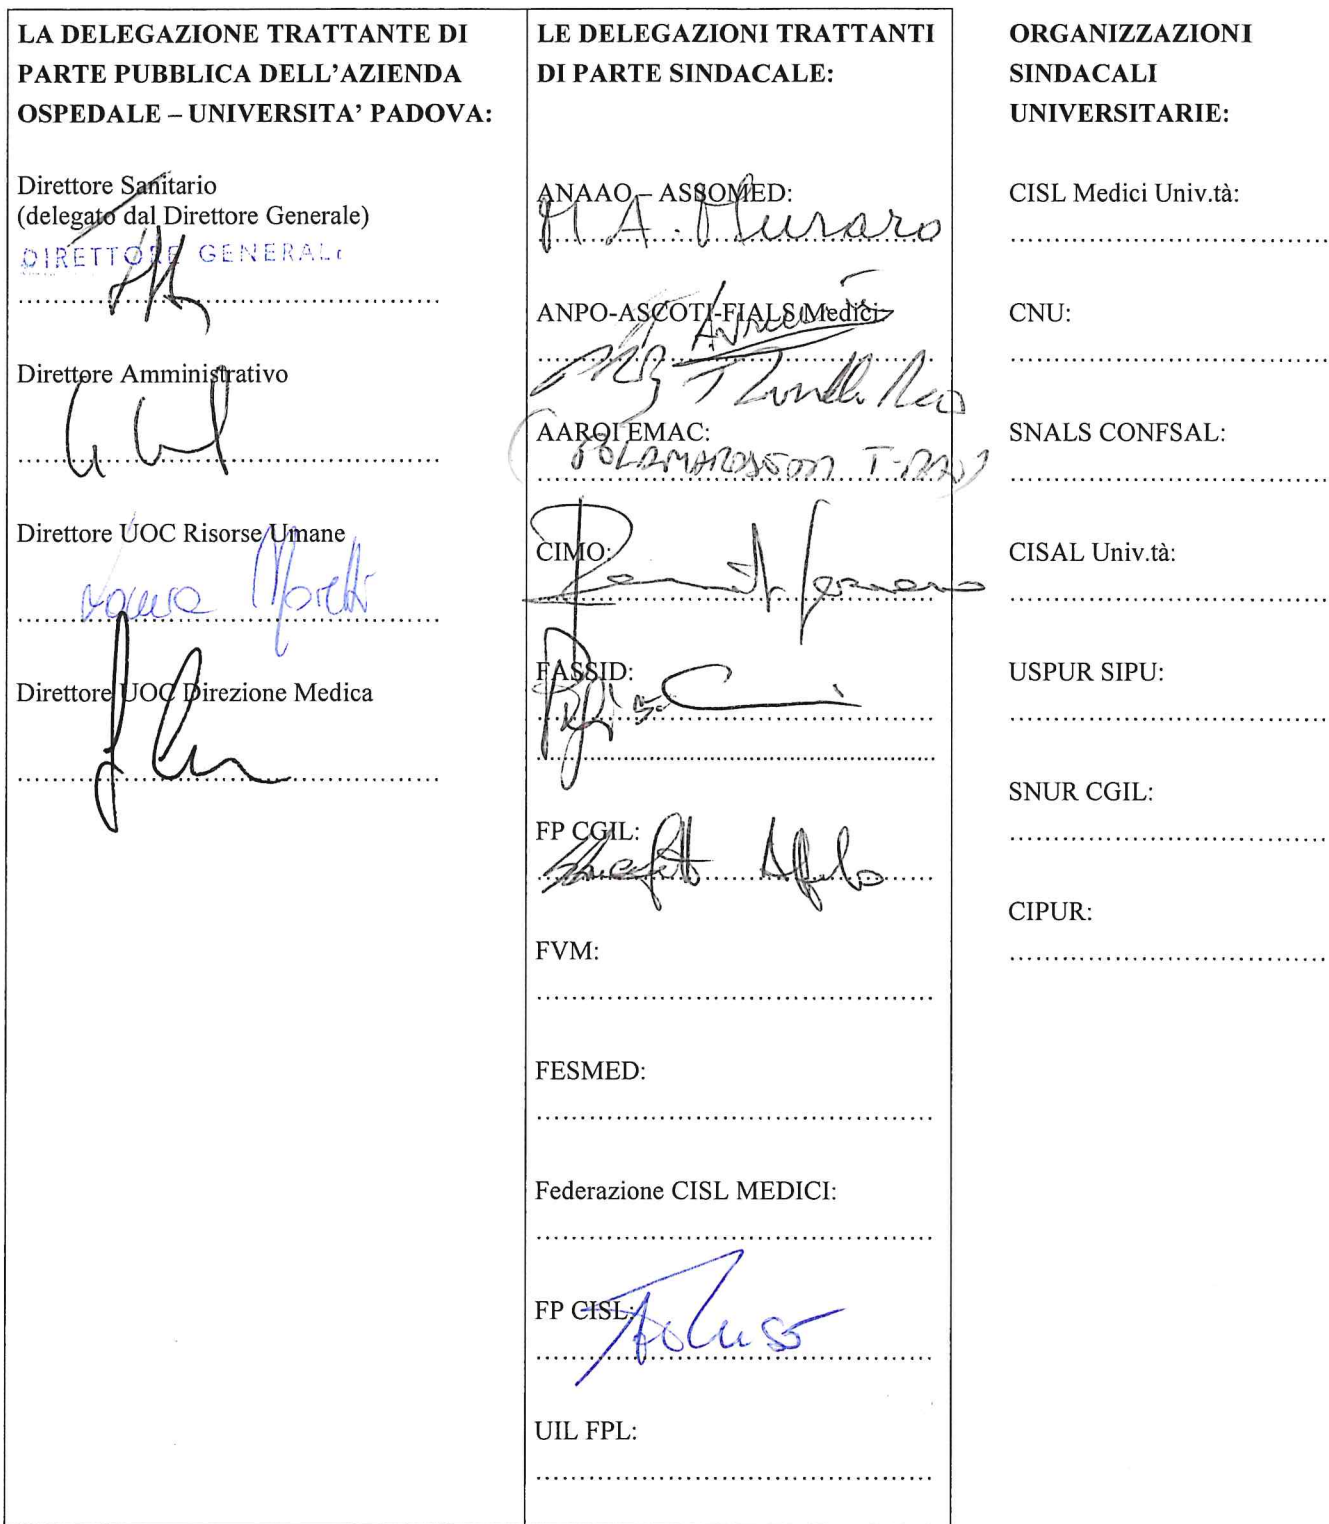 LA DELEGAZIONE TRATTANTE DI
PARTE PUBBLICA DELL'AZIENDA
OSPEDALE – UNIVERSITA' PADOVA:
Direttore Sanitario
(delegato dal Direttore Generale)
DIRETTORE GENERALE
..........................................
Direttore Amministrativo
..........................................
Direttore UOC Risorse Umane
Laura Moretti
..........................................
Direttore UOC Direzione Medica
..........................................
LE DELEGAZIONI TRATTANTI
DI PARTE SINDACALE:
ANAAO – ASSOMED:
M. A. Muraro
..........................................
ANPO-ASCOTI-FIALS Medici
..........................................
AAROI EMAC:
..........................................
CIMO:
..........................................
FASSID:
..........................................
..........................................
FP CGIL:
..........................................
FVM:
..........................................
FESMED:
..........................................
Federazione CISL MEDICI:
..........................................
FP CISL:
..........................................
UIL FPL:
..........................................
ORGANIZZAZIONI
SINDACALI
UNIVERSITARIE:
CISL Medici Univ.tà:
..................................
CNU:
..................................
SNALS CONFSAL:
..................................
CISAL Univ.tà:
..................................
USPUR SIPU:
..................................
SNUR CGIL:
..................................
CIPUR:
..................................